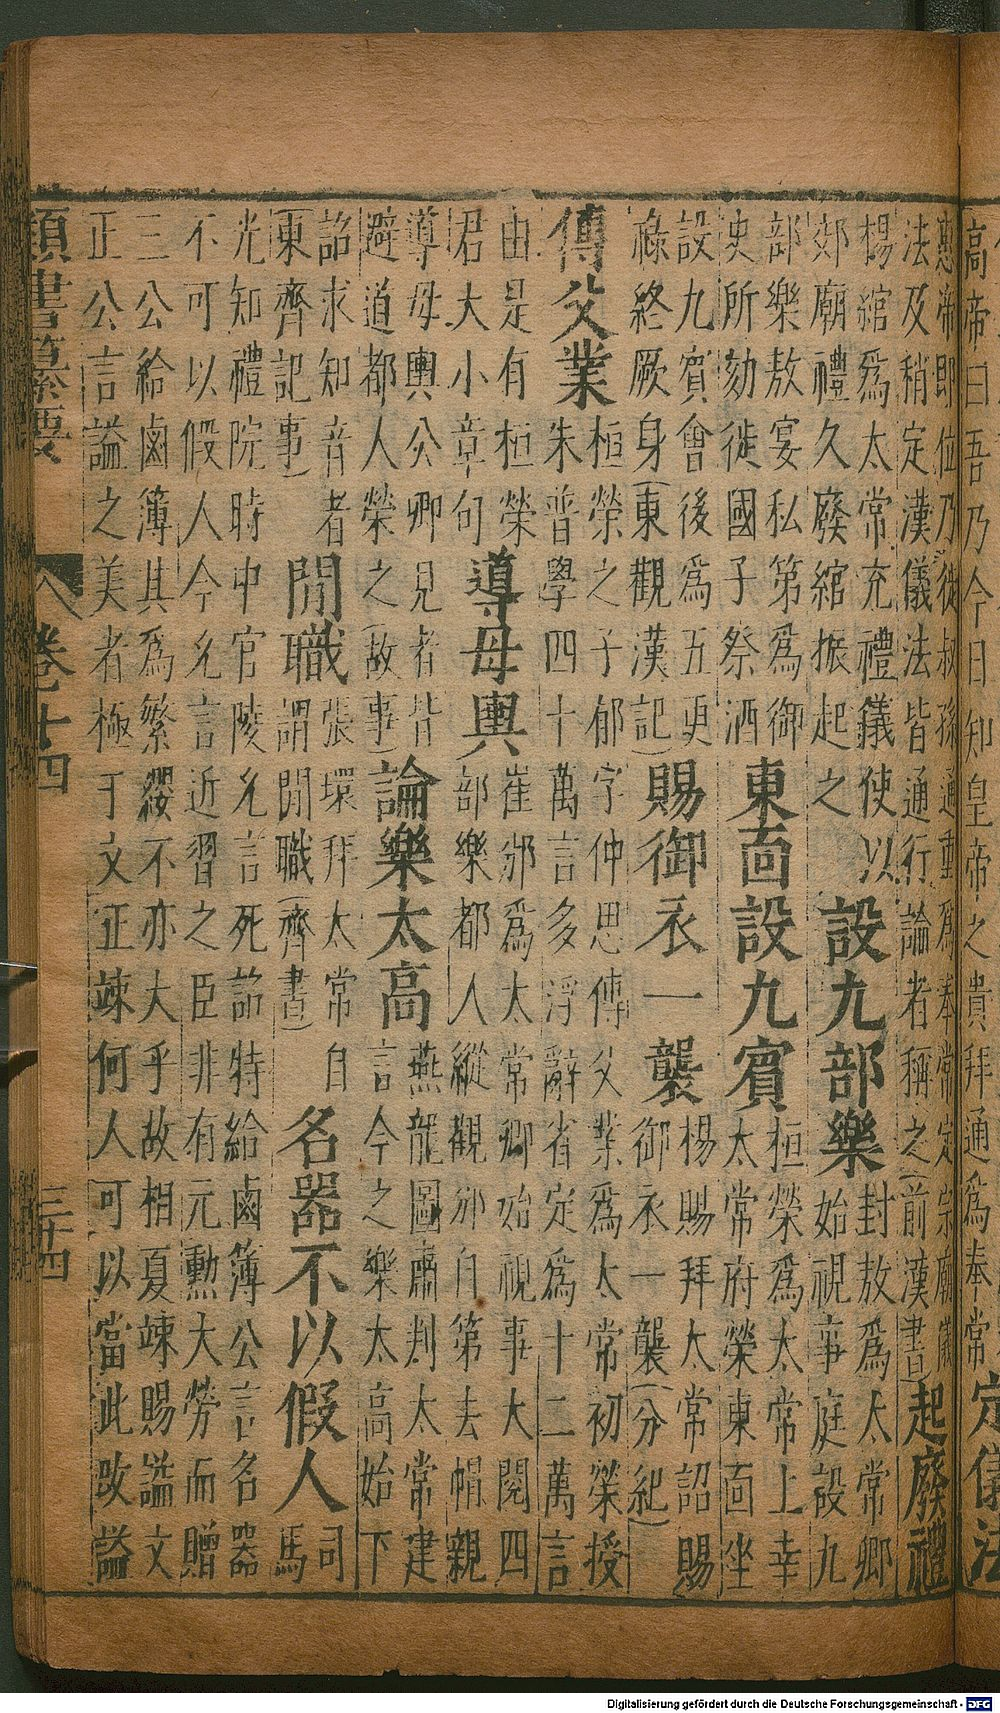 高帝曰吾乃今日知皇帝之貴拜通爲奉常
定儀法
惠帝即位乃徙叔孫通重爲奉常定宗廟儀
法及稍定漢儀法皆通行論者稱之(前漢書)
起廢禮
楊綰爲太常充禮儀使以
郊廟禮久廢綰振起之
設九部樂
封敖爲太常卿
始視事庭設九
部樂敖宴私第爲御
史所劾徙國子祭酒
東面設九賓
桓榮爲太常上幸
太常府榮東面坐
設九賓會後爲五更
祿終厥身(東觀漢記)
賜御衣一襲
楊賜拜太常詔賜
御衣一襲(分紀)
傳父業
桓榮之子郁字仲思傳父業爲太常初榮授
朱普學四十萬言多浮辭省定爲十二萬言
由是有桓榮
君大小章句
導母輿
崔邠爲太常卿始視事大閱四
部樂都人縱觀邠自第去帽親
導母輿公卿見者皆
避道都人榮之(故事)
論樂太高
燕龍圖肅判太常建
言今之樂太高始下
詔求知音者
(東齊記事)
閒職
張環拜太常自
謂閒職(齊書)
名器不以假人
司
馬
光知禮院時中官陵允言死詔特給鹵簿公言名器
不可以假人今允言近習之臣非有元勳大勞而贈
三公給鹵簿其爲繁纓不亦大乎故相夏竦賜謚文
正公言謚之美者極于文正竦何人可以當此改謚
類書纂要 卷十四 三十四
Digitalisierung gefördert durch die Deutsche Forschungsgemeinschaft - DFG